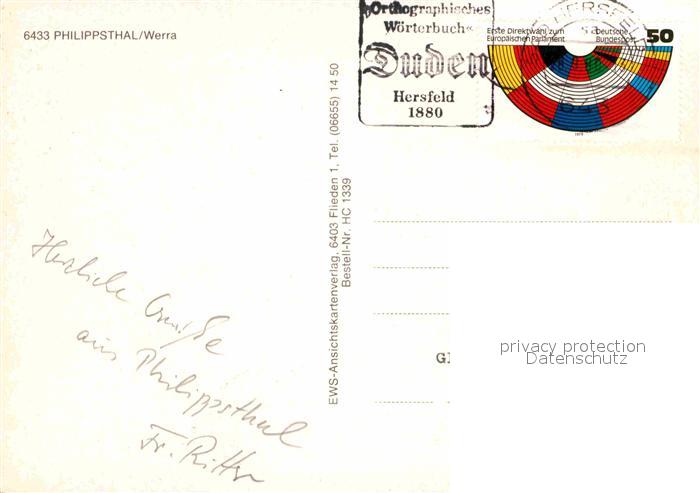 6433 PHILIPPSTHAL/Werra
Orthographisches
Wörterbuch«
Duden
Hersfeld
1880
HERSFELD
643
Erste Direktwahl zum
Europäischen Parlament
Deutsche
Bundespost
50
1979
EWS-Ansichtskartenverlag, 6403 Flieden 1, Tel. (06655) 14 50
Bestell-Nr. HC 1339
Herzliche Grüße
aus Philippsthal
Fr. Ritter
privacy protection
Datenschutz